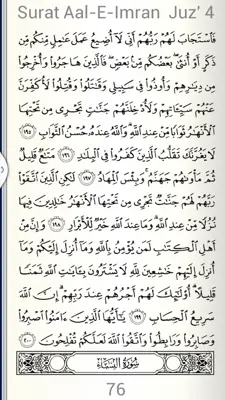 Surat Aal-E-Imran Juz' 4
فَاسْتَجَابَ لَهُمْ رَبُّهُمْ أَنِّي لَا أُضِيعُ عَمَلَ عَامِلٍ مِنْكُمْ مِنْ
ذَكَرٍ أَوْ أُنْثَى بَعْضُكُمْ مِنْ بَعْضٍ فَالَّذِينَ هَاجَرُوا وَأُخْرِجُوا
مِنْ دِيَارِهِمْ وَأُوذُوا فِي سَبِيلِي وَقَاتَلُوا وَقُتِلُوا لَأُكَفِّرَنَّ
عَنْهُمْ سَيِّئَاتِهِمْ وَلَأُدْخِلَنَّهُمْ جَنَّاتٍ تَجْرِي مِنْ تَحْتِهَا
الْأَنْهَارُ ثَوَابًا مِنْ عِنْدِ اللَّهِ وَاللَّهُ عِنْدَهُ حُسْنُ الثَّوَابِ ١٩٥
لَا يَغُرَّنَّكَ تَقَلُّبُ الَّذِينَ كَفَرُوا فِي الْبِلَادِ ١٩٦ مَتَاعٌ قَلِيلٌ
ثُمَّ مَأْوَاهُمْ جَهَنَّمُ وَبِئْسَ الْمِهَادُ ١٩٧ لَكِنِ الَّذِينَ اتَّقَوْا
رَبَّهُمْ لَهُمْ جَنَّاتٌ تَجْرِي مِنْ تَحْتِهَا الْأَنْهَارُ خَالِدِينَ فِيهَا
نُزُلًا مِنْ عِنْدِ اللَّهِ وَمَا عِنْدَ اللَّهِ خَيْرٌ لِلْأَبْرَارِ ١٩٨ وَإِنَّ مِنْ
أَهْلِ الْكِتَابِ لَمَنْ يُؤْمِنُ بِاللَّهِ وَمَا أُنْزِلَ إِلَيْكُمْ وَمَا
أُنْزِلَ إِلَيْهِمْ خَاشِعِينَ لِلَّهِ لَا يَشْتَرُونَ بِآيَاتِ اللَّهِ ثَمَنًا
قَلِيلًا أُولَئِكَ لَهُمْ أَجْرُهُمْ عِنْدَ رَبِّهِمْ إِنَّ اللَّهَ
سَرِيعُ الْحِسَابِ ١٩٩ يَا أَيُّهَا الَّذِينَ آمَنُوا اصْبِرُوا
وَصَابِرُوا وَرَابِطُوا وَاتَّقُوا اللَّهَ لَعَلَّكُمْ تُفْلِحُونَ ٢٠٠
سُورَةُ النِّسَاءِ
76